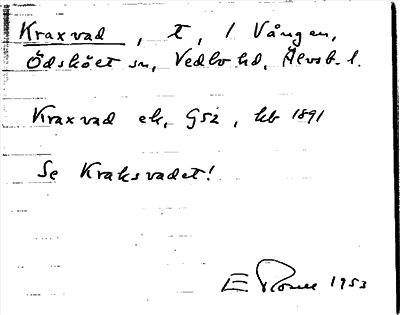 Kraxvad, t, / Vången,
Ödskölt sn, Vedbo hd, Älvsb. l.
Kraxvad ek, G52, kb 1891
Se Kraksvadet!
E 1953